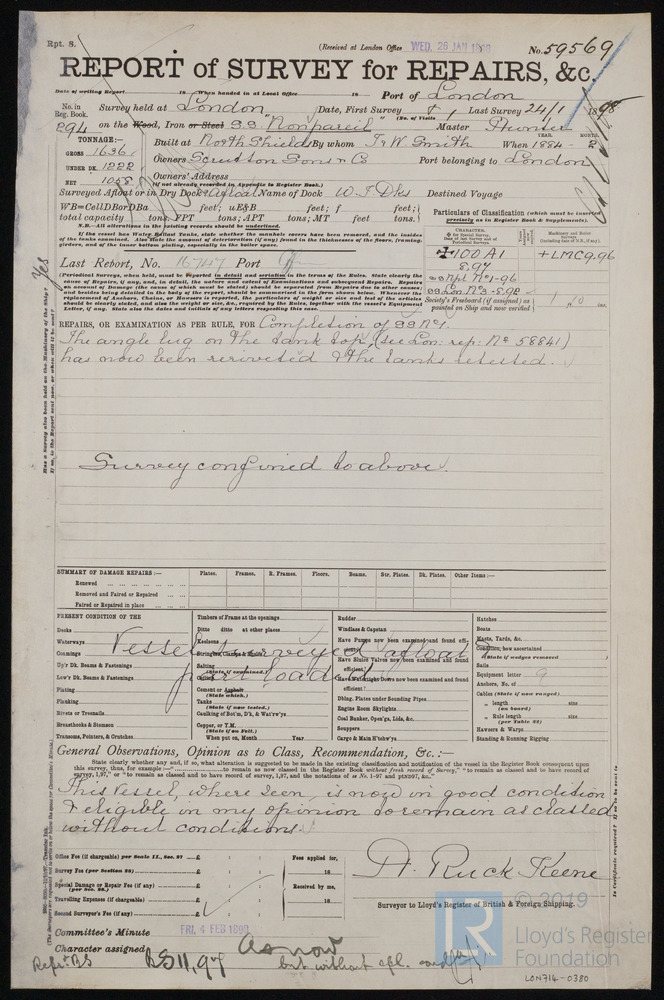 Rpt. 8.
(Received at London Office WED. 26 JAN 1898
No. 59569
REPORT of SURVEY for REPAIRS, &c.
Date of writing Report 18 When handed in at Local Office 18 Port of London
No. in Reg. Book. Survey held at London Date, First Survey Last Survey 24/1 1898
(No. of Visits
894 on the Wood, Iron or Steel S.S. "Nonpareil" Master Hunter
TONNAGE:—
GROSS 1636
UNDER DK. 1222
NET 1058
Built at North Shields By whom T & W Smith When 1884
YEAR. MONTH.
Owners Scrutton Sons & Co Port belonging to London
Owners' Address
(if not already recorded in Appendix to Register Book.)
Surveyed Afloat or in Dry Dock? Afloat Name of Dock W. I Dks Destined Voyage
WB=CellDBorDBa feet; uE&B feet; f feet;
total capacity tons. FPT tons; APT tons; MT feet tons.
N.B.—All alterations in the existing records should be underlined.
If the vessel has Water Ballast Tanks, state whether the manhole covers have been removed, and the insides
of the tanks examined. Also state the amount of deterioration (if any) found in the thicknesses of the floors, framing,
girders, and of the inner bottom plating, especially in the boiler space.
Particulars of Classification (which must be inserted
precisely as in Register Book & Supplements).
CHARACTER.
Machinery and Boiler Surveys
(including date of N.B., if any).
100 A1
8.97
+LMC 9,96
Society's Freeboard (if assigned) as
painted on Ship and now verified
Last Report, No. Port
(Periodical Surveys, when held, must be reported in detail and seriatim in the terms of the Rules. State clearly the
cause of Repairs, if any, and, in detail, the nature and extent of Examinations and subsequent Repairs. Repairs on
account of Damage (the cause of which must be stated) should be separated from Repairs due to other causes;
REPAIRS, OR EXAMINATION AS PER RULE, FOR Completion of SS No 1.
The angle lug on the tank top, (see Lon: rep: No 58841)
has now been reriveted & the tanks retested.
Survey confined to above.
Was a survey also been held on the Machinery of the Ship? Yes
If so, is the Report sent now, or when will it be sent?
SUMMARY OF DAMAGE REPAIRS:— Plates. Frames. R. Frames. Floors. Beams. Str. Plates. Dk. Plates. Other Items:—
Renewed
Removed and Faired or Repaired
Faired or Repaired in place
PRESENT CONDITION OF THE
Decks
Waterways
Coamings
Up'r Dk. Beams & Fastenings
Low'r Dk. Beams & Fastenings
Plating
Planking
Rivets or Treenails
Breasthooks & Stemson
Transoms, Pointers, & Crutches
Timbers of Frame at the openings
Ditto ditto at other places
Keelsons
Stringers, Clamps & Shelves
Salting
(State if examined.)
Ceiling
Cement or Asphalt
(State which.)
Tanks
(State if now tested.)
Caulking of Bot'm, D'k, & Wat'rw'ys
Copper, or Y.M.
(State if on Felt.)
When put on, Month Year
Rudder
Windlass & Capstan
Have Pumps now been examined and found efficient?
Have Sluice Valves now been examined and found efficient?
Have Watertight Doors now been examined and found efficient?
Dblng. Plates under Sounding Pipes
Engine Room Skylights
Coal Bunker, Open'gs, Lids, &c.
Scuppers
Cargo & Main H'tchw'ys
Hatches
Boats
Masts, Yards, &c.
Condition, how ascertained
(State if wedges removed
Sails
Equipment letter 9
Anchors, No. of
Cables (State if now ranged)
„ length size
(on board)
„ Rule length size
(per Table 22)
Hawsers & Warps
Standing & Running Rigging
Vessel surveyed afloat &
part loaded
General Observations, Opinion as to Class, Recommendation, &c.:—
State clearly whether any and, if so, what alteration is suggested to be made in the existing classification and notification of the vessel in the Register Book consequent upon
this survey, thus, for example:— to remain as now classed in the Register Book without fresh record of Survey," "to remain as classed and to have record of
survey, 1,97," or "to remain as classed and to have record of survey, 1,97, and the notations of ss No. 1-97 and ptND97, &c."
This vessel, where seen is now in good condition
& eligible in my opinion to remain as classed
without conditions.
Office Fee (if chargeable) per Scale II., Sec. 27 £
Survey Fee (per Section 28) £
Special Damage or Repair Fee (if any) £
(per Sec. 28.)
Travelling Expenses (if chargeable) £
Second Surveyor's Fee (if any) £
Fees applied for,
18
Received by me,
18
H. Ruck Keene
Surveyor to Lloyd's Register of British & Foreign Shipping.
Committee's Minute FRI. 4 FEB 1898
Character assigned As now
but without spl. cond
BS 11,97
© 2019
Lloyd's Register
Foundation
LON714-0380